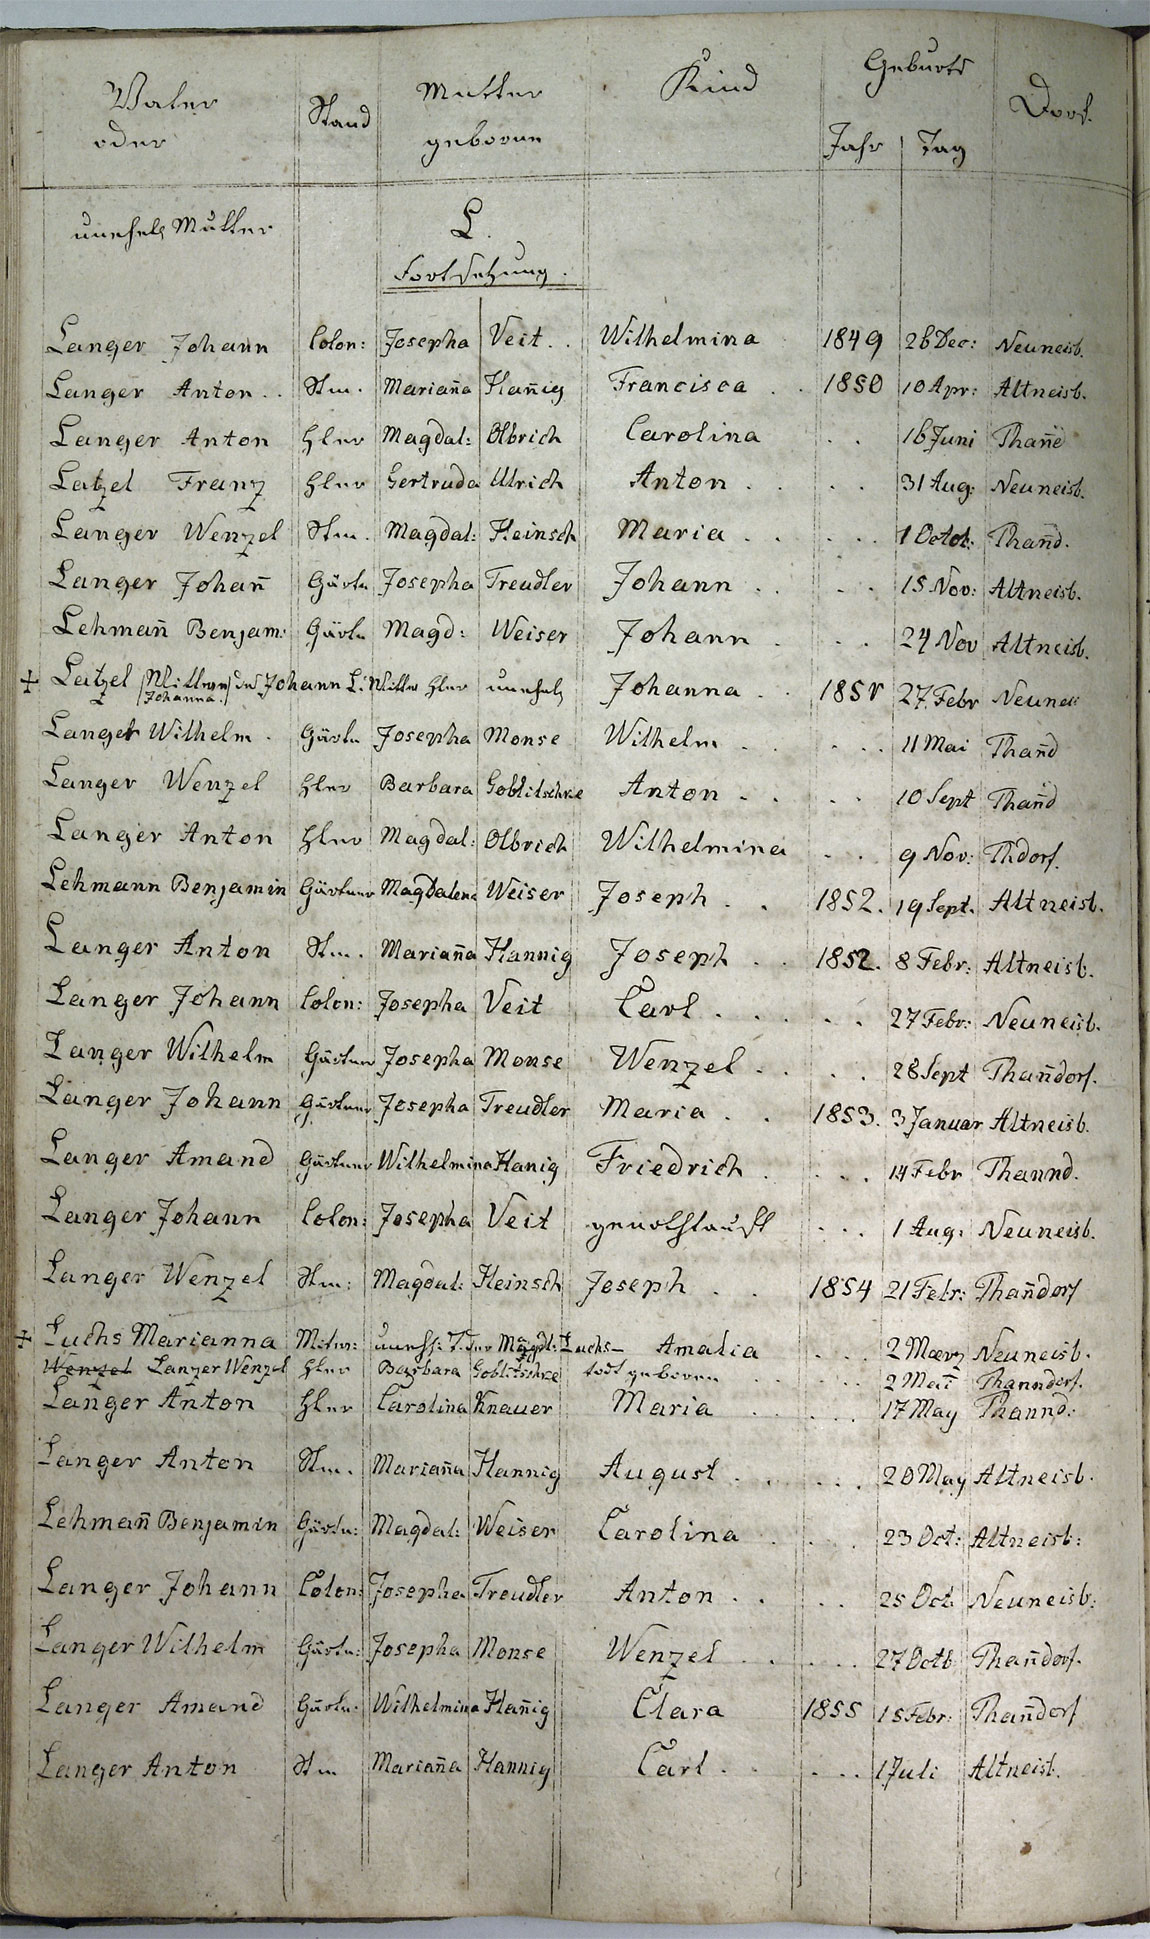 Vater Stand Mutter Kind Geburts Dorf.
oder geborne Jahr Tag
unehel. Mutter L.
Fortsetzung.
Langer Johann Colon: Josepha Veit . . Wilhelmina 1849 26 Dec: Neuneisb.
Langer Anton . . Stm. Mariaña Hañig Francisca . . 1850 10 Apr: Altneisb.
Langer Anton Hler Magdal: Olbrich Carolina . . 16 Juni Thañd
Latzel Franz Hler Gertruda Ulrich Anton . . . . 31 Aug: Neuneisb.
Langer Wenzel Stm. Magdal: Heinsch Maria . . . . . 1 Octob: Thañd.
Langer Johañ Gärtn Josepha Treudler Johann . . . . 15 Nov: Altneisb.
Lehmañ Benjam: Gärtn Magd: Weiser Johann . . . 24 Nov Altneisb.
Latzel Johanna. des Johann L: Hler unehel. Johanna . . 1851 27 Febr Neuneis
Langer Wilhelm . Gärtn Josepha Monse Wilhelm . . . . . 11 Mai Thañd
Langer Wenzel Hler Barbara Goblitschke Anton . . . . 10 Sept Thañd
Langer Anton Hler Magdal: Olbrich Wilhelmina . . . 9 Nov: Thdorf.
Lehmann Benjamin Gärtner Magdalena Weiser Joseph . . 1852. 19 Sept. Altneisb.
Langer Anton Stm. Mariaña Hannig Joseph . . 1852. 8 Febr: Altneisb.
Langer Johann Colon: Josepha Veit Carl . . . . . 27 Febr: Neuneisb.
Langer Wilhelm Gärtner Josepha Monse Wenzel . . . . 28 Sept Thañdorf.
Langer Johann Gärtner Josepha Treudler Maria . . 1853. 3 Januar Altneisb.
Langer Amand Gärtner Wilhelmina Hanig Friedrich . . . . 14 Febr Thannd.
Langer Johann Colon: Josepha Veit genothtauft . . . 1 Aug: Neuneisb.
Langer Wenzel Stm: Magdal: Heinsch Joseph . . 1854 21 Febr: Thañdorf
Luchs Marianna unehl: T. der Magdl: Luchs– Amalia . . . 2 Maerz Neuneisb.
Wenzel Langer Wenzel Hler Barbara Goblitschke todt geboren . . . . . 2 Mai Thanndorf.
Langer Anton Hler Carolina Knauer Maria . . . . 17 May Thannd:
Langer Anton Stm. Mariaña Hannig August . . . . . 20 May Altneisb.
Lehmañ Benjamin Gärtn: Magdal: Weiser Carolina . . . . 23 Oct: Altneisb:
Langer Johann Colon: Josepha Treudler Anton . . . . 25 Oct. Neuneisb:
Langer Wilhelm Gärtn: Josepha Monse Wenzel . . . . . 27 Octb Thañdorf.
Langer Amand Gärtn: Wilhelmina Hañig Clara 1855 15 Febr: Thañdorf
Langer Anton Stm Mariaña Hannig Carl . . . . . 1 Juli Altneisb.